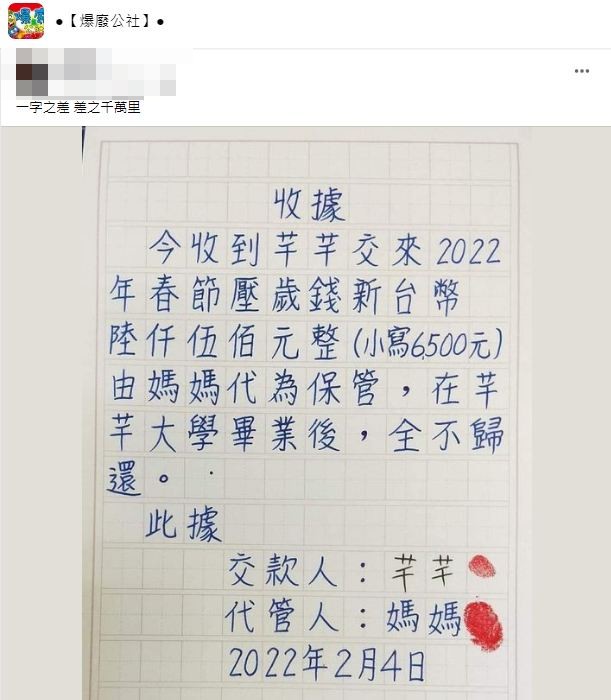 ●【爆廢公社】●
一字之差 差之千萬里
收據
今收到芊芊交來2022
年春節壓歲錢新台幣
陸仟伍佰元整(小寫6,500元)
由媽媽代為保管，在芊
芊大學畢業後，全不歸
還。
此據
交款人：芊芊
代管人：媽媽
2022年2月4日